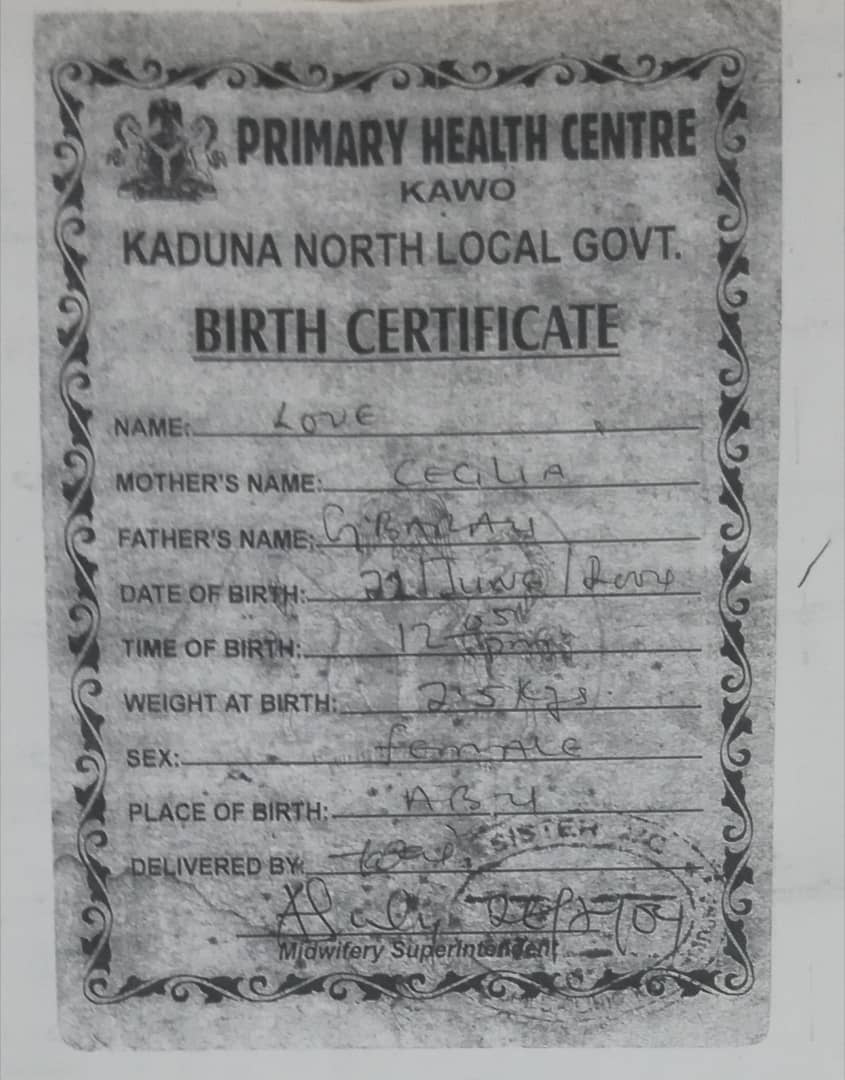 PRIMARY HEALTH CENTRE
KAWO
KADUNA NORTH LOCAL GOVT.
BIRTH CERTIFICATE
NAME: LOVE
MOTHER'S NAME: CECILIA
FATHER'S NAME:
DATE OF BIRTH: June / 2004
TIME OF BIRTH: 12
WEIGHT AT BIRTH: 2.5 Kgs.
SEX: female
PLACE OF BIRTH:
DELIVERED BY:
SISTER
Midwifery Superintendent